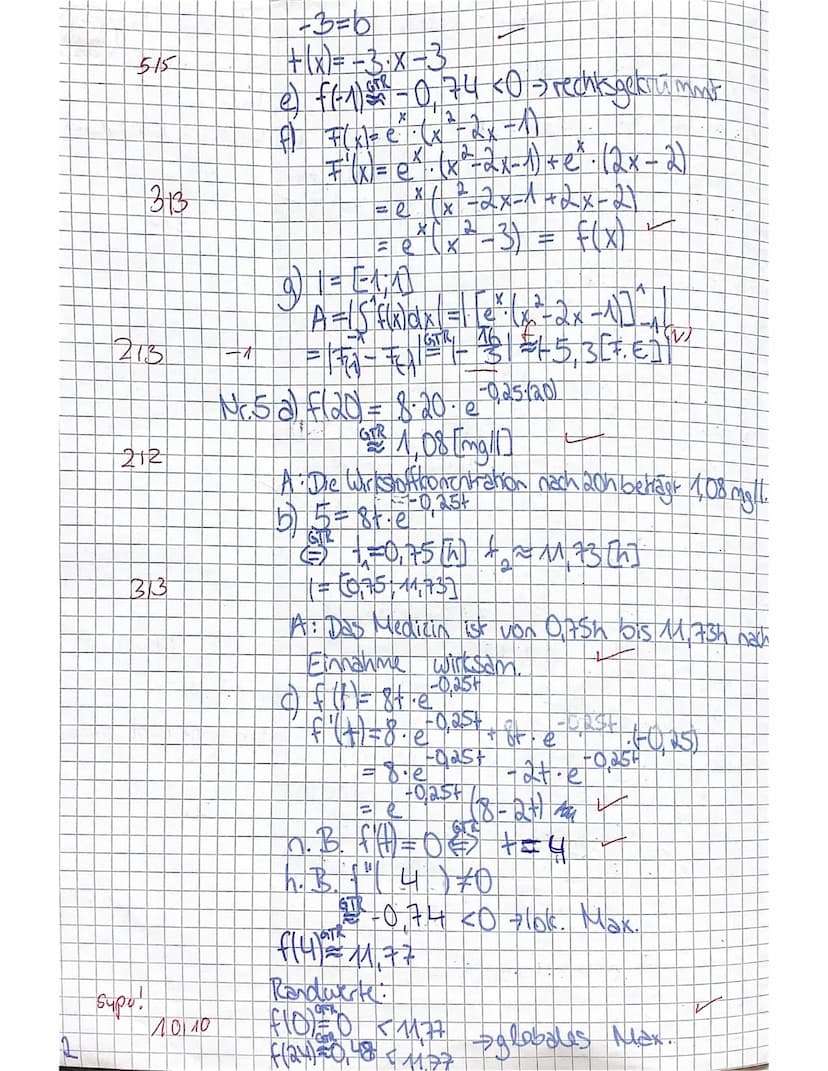 -3=b
5/5 t(x)=-3·x-3
e) f(-1) GTR≈ -0,74 <0 → rechtsgekrümmt
f) F(x)=e^x·(x²-2x-1)
F'(x)=e^x·(x²-2x-1)+e^x·(2x-2)
3/3 =e^x(x²-2x-1+2x-2)
=e^x(x²-3) = f(x)
g) I=[-1;1]
A=|∫f(x)dx|=|[e^x·(x²-2x-1)]
2/3 -1 GTR 5,3[F.E] (v)
Nr.5 a) f(20)=8·20·e^-0,25·(20)
GTR≈ 1,08[mg/l]
2/2
A: Die Wirkstoffkonzntration nach 20h beträgt 1,08 mg/l.
b) 5=8t·e^-0,25t
GTR⇔ t₁=0,75[h] t₂≈11,73[h]
3/3 I=[0,75;11,73]
A: Das Medizin ist von 0,75h bis 11,73h nach
Einnahme wirksam.
c) f(t)=8t·e^-0,25t
f'(t)=8·e^-0,25t+8t·e^-0,25t·(-0,25)
=8·e^-0,25t -2t·e^-0,25t
=e^-0,25t(8-2t)
n.B. f'(t)=0 GTR⇔ t=4
h.B. f"(4)≠0
GTR≈ -0,74 <0 → lok. Max.
f(4) GTR≈ 11,77
Randwerte:
super!
10/10 f(0) GTR= 0 < 11,77
2 f(24) GTR≈ 0,48 < 11,77 → globales Max.